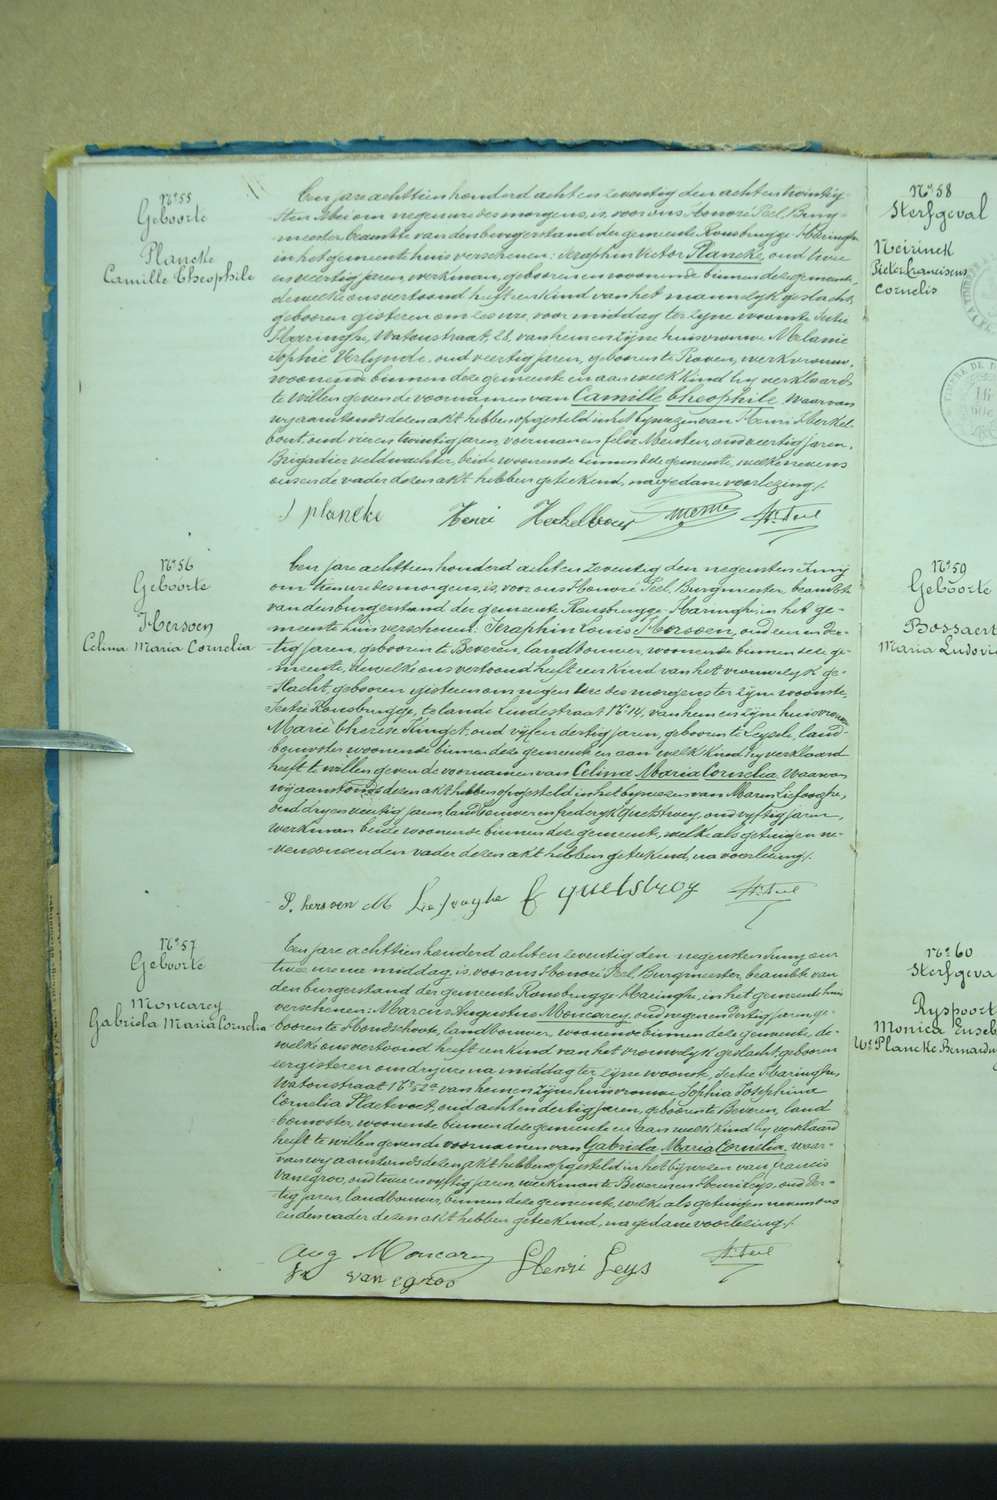 N° 55
Geboorte
Plancke
Camille Theophile
Een jare achttien honderd acht en zeventig den acht en twintig-
sten Mei om negen ure des morgens, is, voor ons Honoré Peel Burg-
meester, beambte van den burgerstand der gemeente Rousbrugge-Haringhe
in het gemeente huis verschenen: Seraphin Victor Plancke, oud twee
en veertig jaren, werkman, geboren en woonende binnen deze gemeente,
dewelke ons vertoond heeft een kind van het mannelyk geslacht,
geboren gisteren om zes ure, voor middag ter zyne woonste Sectie
Haringhe, Watoustraat, 28, van hem en zyne huisvrouwe Melanie
Sophie Verlynde, oud veertig jaren, geboren te Proven, werkvrouw,
woonende binnen deze gemeente en aan welk kind hy verklaard
te willen geven de voornamen van Camille Theophile. Waarvan
wy aanstonds dezen akt hebben opgesteld in het bywezen van Henri Herkel-
bout, oud vier en twintig jaren, voerman en felix Meesten, oud veertig jaren,
Brigadier veldwachter, beide woonende binnen deze gemeente, welke nevens
ons en de vader dezen akt hebben geteekend, na gedane voorlezing /.
S plancke Henri Herkelbout H. Peel
N° 56
Geboorte
Hersoen
Celina Maria Cornelia
Een jare achttien honderd acht en zeventig den negensten Juny
om tien ure des morgens, is, voor ons Honoré Peel, Burgmeester, beambte
van den burgerstand der gemeente Rousbrugge-Haringhe, in het ge-
meente huis verschenen: Seraphin Louis Hersoen, oud een en der-
tig jaren, geboren te Beveren, landbouwer, woonende binnen deze ge-
meente, dewelke ons vertoond heeft een kind van het vrouwelyk ge-
slacht, geboren gisteren om negen ure des morgens ter zyne woonste,
Sectie Rousbrugge, te lande Lindestraat N° 14, van hem en zyne huisvrouwe
Marie Therese Kinget, oud vyf en dertig jaren, geboren te Leysele, land-
bouwster woonende binnen deze gemeente en aan welk kind hy verklaard
heeft te willen geven de voornamen van Celina Maria Cornelia. Waarvan
wy aanstonds dezen akt hebben opgesteld in het bywezen van Marin Liefooghe,
oud dry en veertig jaren, landbouwer en frederyk Quetstroey, oud vyftig jaren,
werkman beide woonende binnen deze gemeente, welke als getuigen ne-
vens ons en den vader dezen akt hebben geteekend, na voorlezing /.
S. hersoen M Liefooghe F quetstroy H. Peel
N° 57
Geboorte
Moncarey
Gabriela Maria Cornelia
Een jare achttien honderd acht en zeventig den negensten Juny om
twee ure na middag, is voor ons Honoré Peel, Burgmeester, beambte van
den burgerstand der gemeente Rousbrugge-Haringhe, in het gemeente huis
verschenen: Marcus Augustus Moncarey, oud negen en dertig jaren, ge-
boren te Hondschoote, landbouwer, woonende binnen deze gemeente, de-
welke ons vertoond heeft een kind van het vrouwelyk geslacht geboren
eergisteren om dry ure na middag ter zyne woonste, Sectie Haringhe,
Watoustraat N° 52a van hem en zyne huisvrouwe Sophia Josephina
Cornelia Plaetevoet, oud acht en dertig jaren, geboren te Beveren, land
bouwster, woonende binnen deze gemeente en aan welk kind hy verklaard
heeft te willen geven de voornamen van Gabriela Maria Cornelia, waar-
van wy aanstonds dezen akt hebben opgesteld in het bywezen van francis
Vanegroo, oud twee en vyftig jaren, werkman te Beveren en Henri Leys, oud der-
tig jaren, landbouwer, binnen deze gemeente, welke als getuigen nevens ons
en den vader dezen akt hebben geteekend, na gedane voorlezing /.
Aug Moncarey
fr van egroo Henri Leys H. Peel
N° 58
Sterfgeval
Neirinck
Pieter franciscus
Cornelis
N° 59
Geboorte
Bossaert
Maria Ludovi
N° 60
Sterfgeva
Ryspoort
Monica Euseb
We Plancke Bernardu
TIMBRE DE